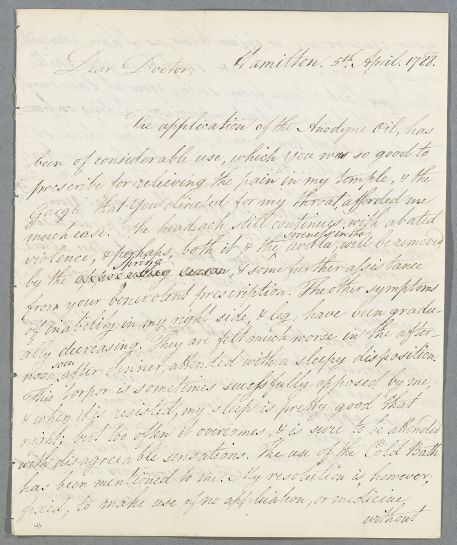 Hamilton. 5th. April. 1788.
Dear Doctor,
The application of the Anodyne Oil, has
been of considerable use, which you was so good to
prescribe for relieving the pain in my temple, & the
Gargle that you directed for my throat afforded me
much ease. The headach still continues with abated
violence, & perhaps, both it & the soreness in the
uvula, will be removed
by the Spring & some further assistance
from your benevolent prescription. The other symptoms
of inability in my right side, & leg, have been gradu-
ally decreasing. They are felt much worse in the after-
noon, soon after dinner, attended with a sleepy disposition.
this torpor is sometimes successfully opposed by me,
& when it is resisted, my sleep is pretty good that
night; but too often it overcomes, & is sure to be attended
with disagreeable sensations. The use of the Cold Bath
has been mentioned to me. My resolution is, however,
fixed, to make use of no application, or medicine,
without